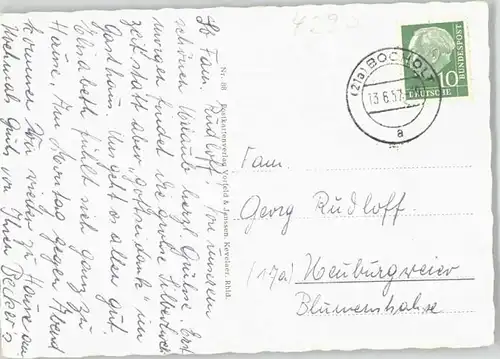 4290
Lb. Fam. Rudloff! Von unserem
schönen Urlaub herzl. Grüße. Erst
morgen findet die große Silberhoch-
zeit statt aber "gottseidank" im
Gasthaus. Uns geht es allen gut.
Elisabeth fühlt sich ganz zu
Hause. Am Montag gegen Abend
kommen wir wieder zu Hause an
Nochmals Gruß von Ihren Beckers
Nr. 88 Postkartenverlag Verfeld & Janssen, Kevelaer, Rhld.
(21a) BOCHOLT
13.6.57
a
DEUTSCHE
BUNDESPOST
10
Fam.
Georg Rudloff
(17a) Neuburgweier
Blumenstraße